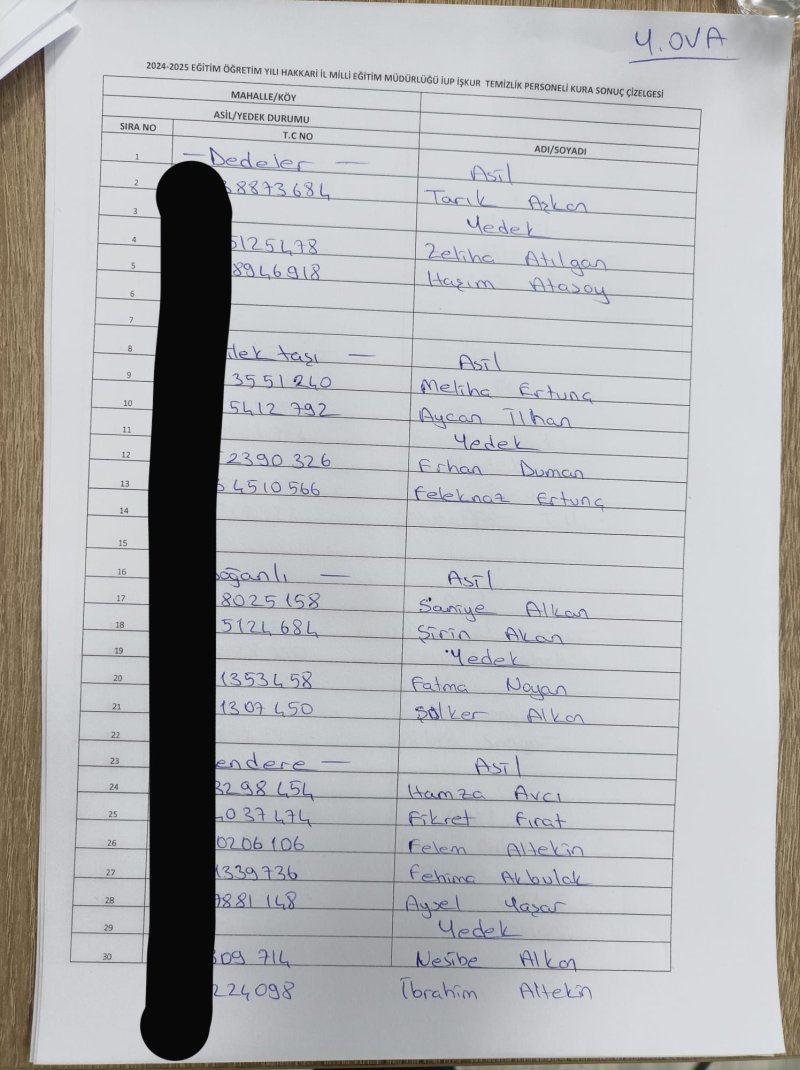 Y.OVA
2024-2025 EĞİTİM ÖĞRETİM YILI HAKKARİ İL MİLLİ EĞİTİM MÜDÜRLÜĞÜ İUP İŞKUR TEMİZLİK PERSONELİ KURA SONUÇ ÇİZELGESİ
MAHALLE/KÖY
ASİL/YEDEK DURUMU
SIRA NO T.C NO ADI/SOYADI
1 — Dedeler — Asil
2 8873684 Tarık Aşkan
3 Yedek
4 5125478 Zeliha Atılgan
5 8946918 Haşım Atasoy
6
7
8 lek taşı — Asil
9 3551240 Meliha Ertunç
10 5412 792 Aycan İlhan
11 Yedek
12 2390 326 Erhan Duman
13 4510566 Feleknaz Ertunç
14
15
16 oğanlı — Asil
17 8025158 Saniye Alkan
18 5124684 Şirin Akan
19 Yedek
20 1353458 Fatma Noyan
21 1307450 Şölker Alkan
22
23 endere — Asil
24 3298 454 Hamza Avcı
25 037474 Fikret Fırat
26 0206106 Felem Altekin
27 1339736 Fehima Akbulak
28 881 148 Aysel Yaşar
29 Yedek
30 309 714 Nesibe Alkan
224098 İbrahim Altekin